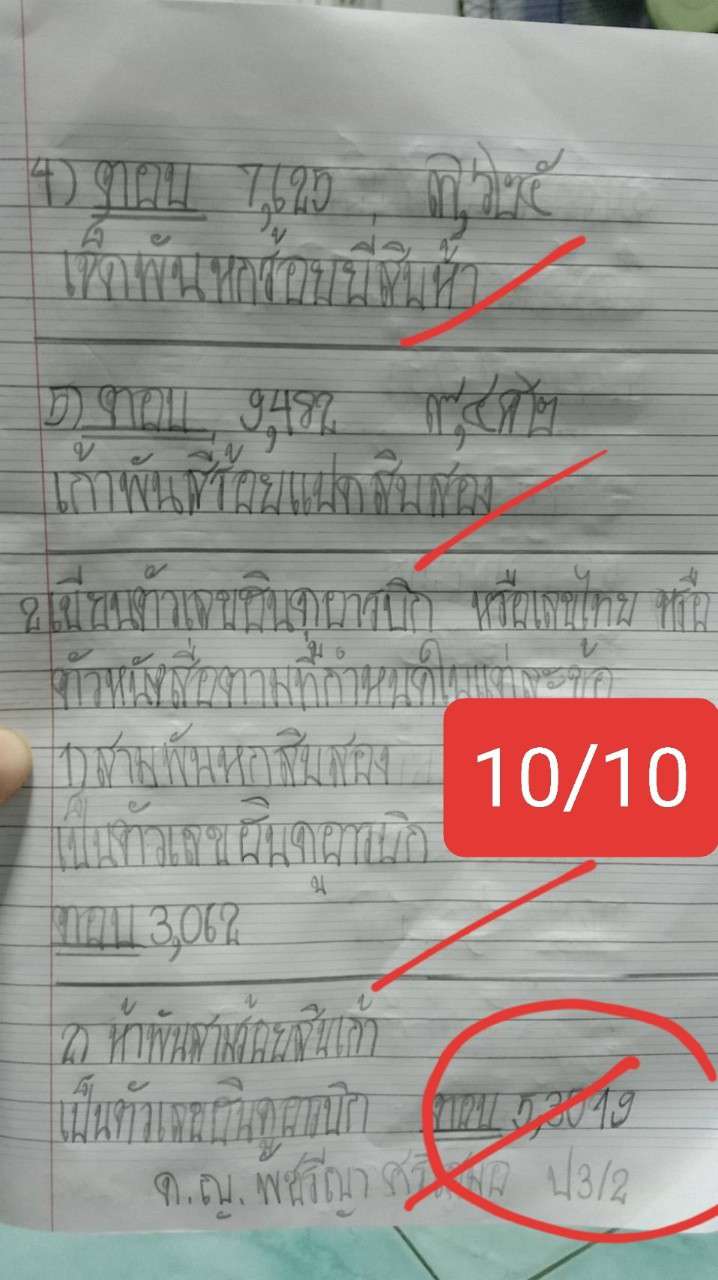 4) ตอบ 7,625 ๗,๖๒๕
เจ็ดพันหกร้อยยี่สิบห้า
5) ตอบ 9,482 ๙,๔๘๒
เก้าพันสี่ร้อยแปดสิบสอง
2 เขียนตัวเลขฮินดูอารบิก หรือเลขไทย หรือ
ตัวหนังสือตามที่กำหนดในแต่ละข้อ
1) สามพันหกสิบสอง
10/10
เป็นตัวเลขฮินดูอารบิก
ตอบ 3,062
2) ห้าพันสามร้อยสิบเก้า
เป็นตัวเลขฮินดูอารบิก ตอบ 5,3019
ด.ญ. พัชรีญา ป3/2